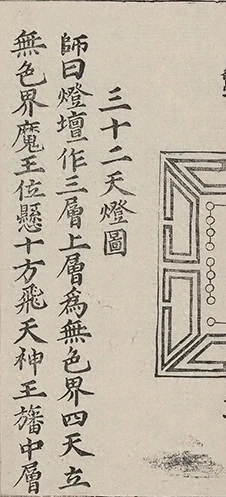 三十二天燈圖
師曰燈壇作三層上層為無色界四天立
無色界魔王位懸十方飛天神王旛中層